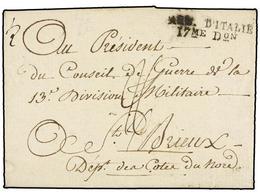 ARM. D'ITALIE
17ME DON
Au Président
du Conseil de Guerre de la
13e. Division Militaire
A St. Brieux
Dépt. des Cotes du Nord